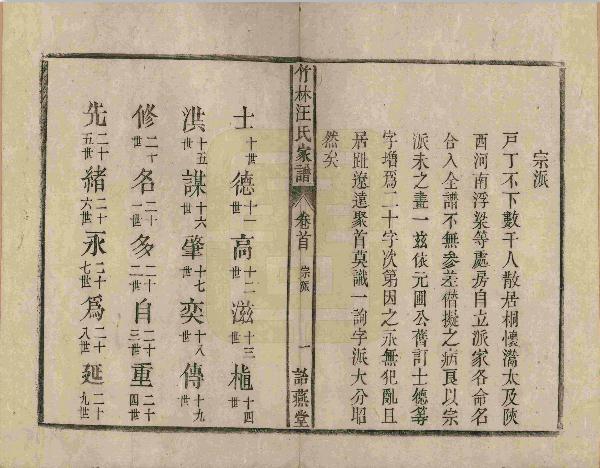 宗派
戸丁不下數千人散居桐懷潛太及陝
西河南浮梁等處房自立派家各命名
合入全譜不無參差僭擬之病良以宗
派未之畫一兹依元圃公舊訂士德等
字增爲二十字次第因之永無犯亂且
居趾遼遠聚首莫識一詢字派大分昭
然矣
竹林汪氏家譜 卷首 宗派 一 詒燕堂
士十世 德十一世 高十二世 滋十三世 植十四世
洪十五世 謀十六世 肇十七世 奕十八世 傳十九世
修二十世 名二十一世 多二十二世 自二十三世 重二十四世
先二十五世 緒二十六世 永二十七世 爲二十八世 延二十九世